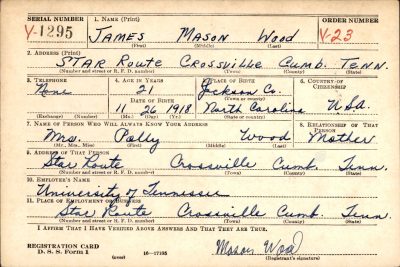 SERIAL NUMBER 1. NAME (Print) ORDER NUMBER
V-1295 JAMES MASON WOOD V-23
(First) (Middle) (Last)
2. ADDRESS (Print)
STAR ROUTE CROSSVILLE CUMB. TENN.
(Number and street or R. F. D. number) (Town) (County) (State)
3. TELEPHONE 4. AGE IN YEARS 5. PLACE OF BIRTH 6. COUNTRY OF CITIZENSHIP
None 21 Jackson Co.
DATE OF BIRTH (Town or county)
11 26 1918 North Carolina U.S.A.
(Exchange) (Number) (Mo.) (Day) (Yr.) (State or country)
7. NAME OF PERSON WHO WILL ALWAYS KNOW YOUR ADDRESS 8. RELATIONSHIP OF THAT PERSON
Mrs. Polly Wood Mother
(Mr., Mrs., Miss) (First) (Middle) (Last)
9. ADDRESS OF THAT PERSON
Star Route Crossville Cumb. Tenn.
(Number and street or R. F. D. number) (Town) (County) (State)
10. EMPLOYER'S NAME
University of Tennessee
11. PLACE OF EMPLOYMENT OR BUSINESS
Star Route Crossville Cumb. Tenn.
(Number and street or R. F. D. number) (Town) (County) (State)
I AFFIRM THAT I HAVE VERIFIED ABOVE ANSWERS AND THAT THEY ARE TRUE.
REGISTRATION CARD
D. S. S. Form 1 16-17105 Mason Wood
(over) (Registrant's signature)